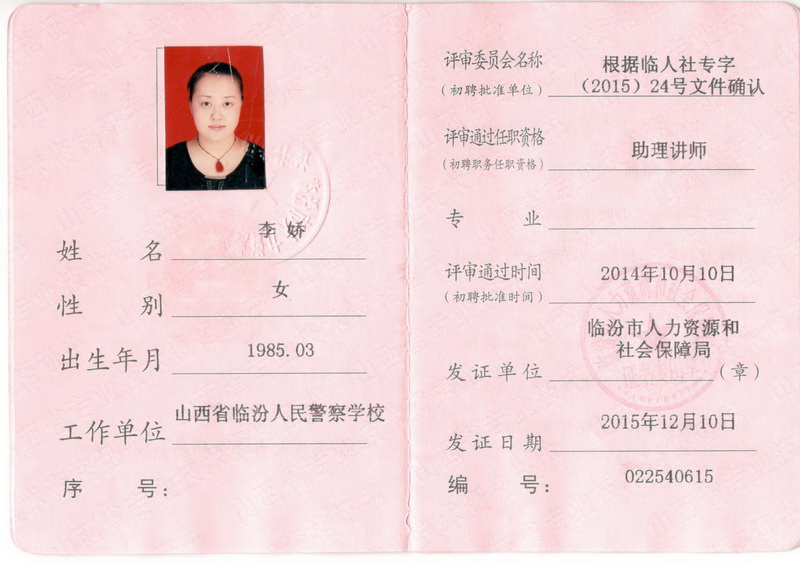 李 娇
姓 名
女
性 别
1985.03
出生年月
山西省临汾人民警察学校
工作单位
序 号：
评审委员会名称
（初聘批准单位）
根据临人社专字
（2015）24号文件确认
评审通过任职资格
（初聘职务任职资格）
助理讲师
专 业
评审通过时间
（初聘批准时间）
2014年10月10日
临汾市人力资源和
社会保障局
发证单位
（章）
2015年12月10日
发证日期
022540615
编 号：